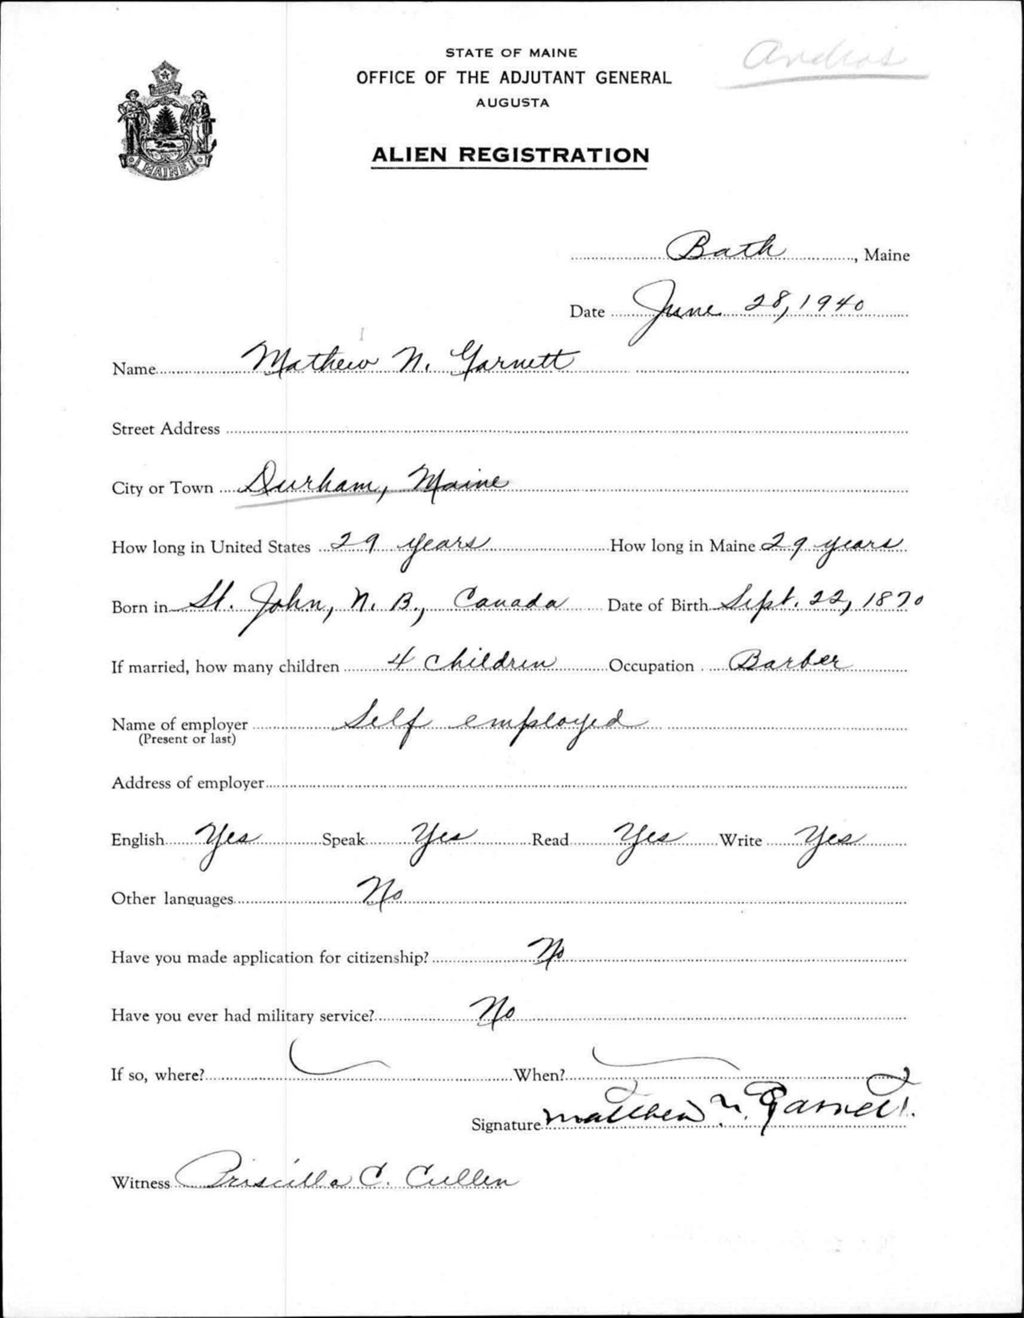 STATE OF MAINE
OFFICE OF THE ADJUTANT GENERAL
AUGUSTA
ALIEN REGISTRATION
MAINE
Bath, Maine
Date June 28, 1940
Name Mathew N. Garnett
Street Address
City or Town Durham, Maine
How long in United States 29 years How long in Maine 29 years
Born in St. John, N. B., Canada Date of Birth Sept. 22, 1870
If married, how many children 4 children Occupation Barber
Name of employer Self employed
(Present or last)
Address of employer
English Yes Speak Yes Read Yes Write Yes
Other languages No
Have you made application for citizenship? No
Have you ever had military service? No
If so, where? When?
Signature Matthew N. Garnett.
Witness Priscilla C. Cullen